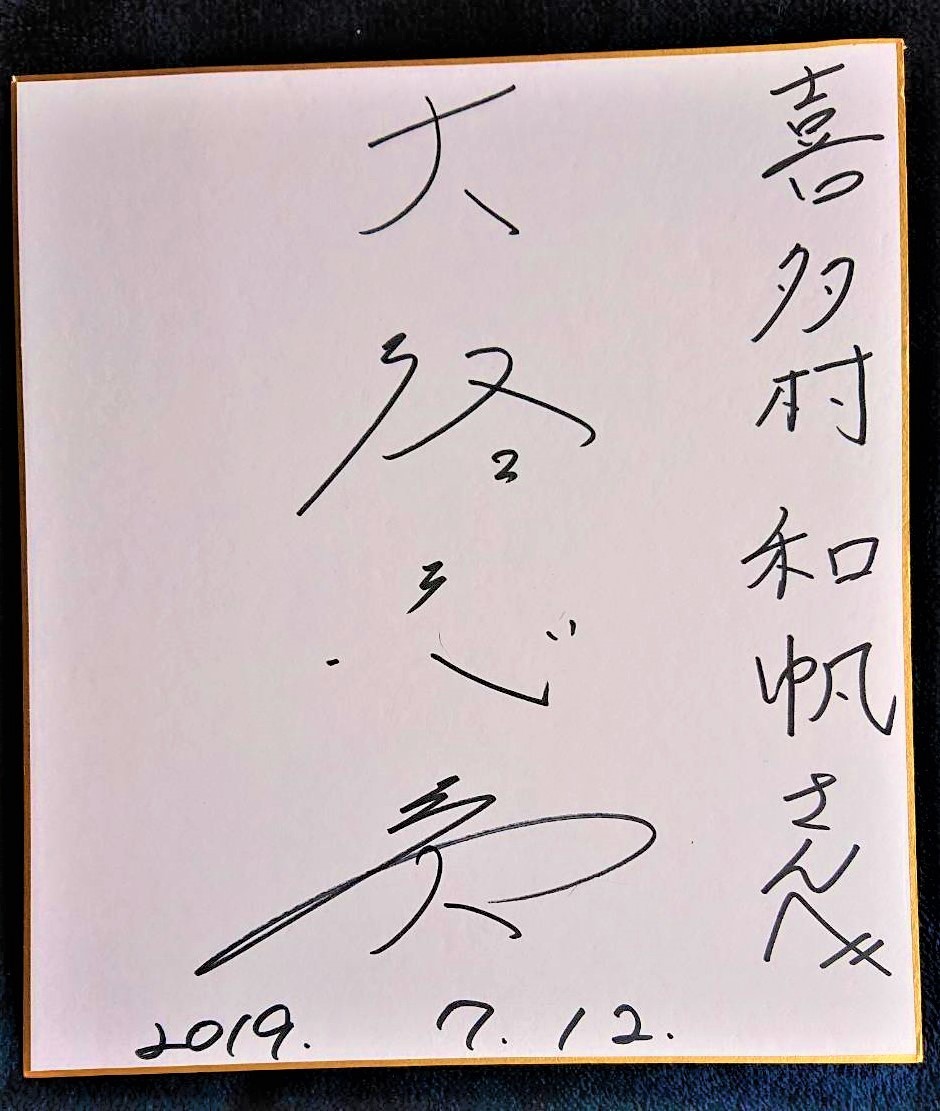 喜多村和帆さんへ
大路恵美
2019. 7. 12.